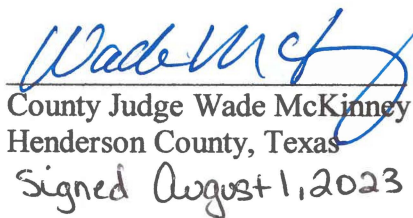 Wade McK
County Judge Wade McKinney
Henderson County, Texas
Signed August 1, 2023